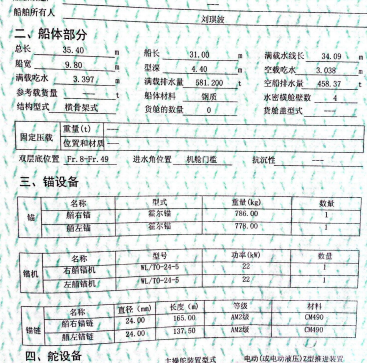 船舶所有人 刘琪波
二、船体部分
总长 35.40 m 船长 31.00 m 满载水线长 34.09 m
船宽 9.80 m 型深 4.40 m 空载吃水 3.038 m
满载吃水 3.397 m 满载排水量 581.200 t 空船排水量 458.37 t
参考载货量 --- t 船体材料 钢质 水密横舱壁数 4
结构型式 横骨架式 货舱的数量 0 货舱盖型式 ---
固定压载 重量(t) ---
位置和材质 ---
双层底位置 Fr.8-Fr.49 进水角位置 机舱门槛 抗沉性 ---
三、锚设备
名称 型式 重量(kg) 数量
锚 船右锚 霍尔锚 786.00 1
船左锚 霍尔锚 778.00 1
名称 型号 功率(kW) 数量
锚机 右艏锚机 WL/TO-24-5 22 1
左艏锚机 WL/TO-24-5 22 1
名称 直径 (mm) 长度 (m) 等级 材料
锚链 船右锚链 24.00 165.00 AM2级 CM490
船左锚链 24.00 137.50 AM2级 CM490
四、舵设备 主操舵装置型式 电动(或电动液压)Z型推进装置